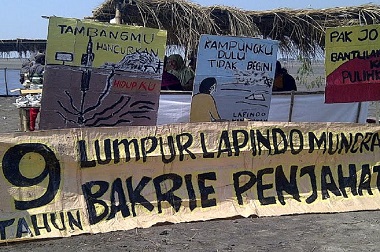 TAMBANGMU
HANCURKAN
HIDUPKU
KAMPUNGKU
DULU
TIDAK BEGINI
LAPINDO
PAK JO
BANTULA
PULIH
9
TAHUN
LUMPUR LAPINDO MUNCRA
BAKRIE PENJAHAT